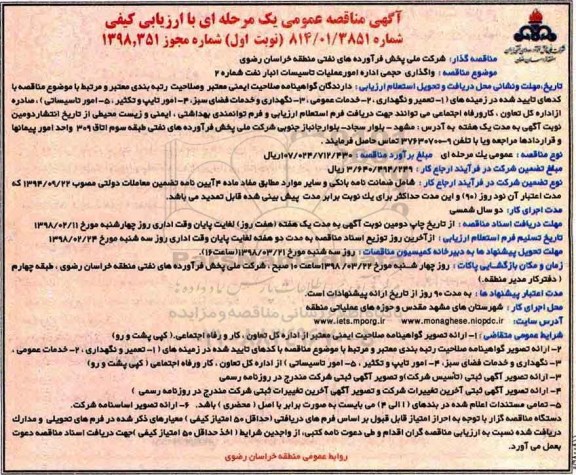 آگهی مناقصه عمومی یک مرحله ای با ارزیابی کیفی
شماره ۸۱۴/۰۱/۳۸۵۱ (نوبت اول) شماره مجوز ۱۳۹۸,۳۵۱
مناقصه گذار: شرکت ملی پخش فرآورده های نفتی منطقه خراسان رضوی
موضوع مناقصه : واگذاری حجمی اداره امورعملیات تاسیسات انبار نفت شماره ۲
تاریخ،مهلت ونشانی محل دریافت و تحویل استعلام ارزیابی : دارندگان گواهینامه صلاحیت ایمنی معتبر وصلاحیت رتبه بندی معتبر و مرتبط با موضوع مناقصه با
کدهای تایید شده در زمینه های (۱-تعمیر و نگهداری، ۲-خدمات عمومی ، ۳- نگهداری و خدمات فضای سبز، ۴-امور تایپ و تکثیر ، ۵-امور تاسیساتی) ، صادره
ازاداره کل تعاون ، کارورفاه اجتماعی می توانند جهت دریافت فرم استعلام ارزیابی و فرم توانمندی بهداشتی ، ایمنی و زیست محیطی از تاریخ انتشاردومین
نوبت آگهی به مدت یک هفته به آدرس : مشهد - بلوار سجاد- بلوارجانباز جنوبی شرکت ملی پخش فرآورده های نفتی طبقه سوم اتاق۳۰۹ واحد امور پیمانها
و قراردادها مراجعه ویا با تلفن ۹-۳۷۶۳۰۷۰۰ تماس حاصل فرمایند.
نوع مناقصه : عمومی یک مرحله ای مبلغ برآورد مناقصه :۱۰۷/۰۲۴/۷۱۲/۴۳۰ریال
مبلغ تضمین شرکت در فرآیند ارجاع کار : ۳/۶۴۰/۴۹۴/۲۴۹ ریال
نوع تضمین شرکت در فرآیند ارجاع کار : شامل ضمانت نامه بانکی و سایر موارد مطابق مفاد ماده ۴آیین نامه تضمین معاملات دولتی مصوب ۱۳۹۴/۰۹/۲۲ که
مدت اعتبار آن نود روز (۹۰) و این مدت حداکثر برای یک نوبت برابر مدت پیش بینی شده قابل تمدید می باشد.
مدت اجرای کار: دو سال شمسی
مهلت دریافت اسناد مناقصه : از تاریخ چاپ دومین نوبت آگهی به مدت یک هفته (هفت روز) لغایت پایان وقت اداری روز چهارشنبه مورخ ۱۳۹۸/۰۲/۱۱
تاریخ تسلیم فرم استعلام ارزیابی : ازآخرین روز توزیع اسناد مناقصه به مدت دو هفته لغایت پایان وقت اداری روز سه شنبه مورخ ۱۳۹۸/۰۲/۲۴
مهلت تحویل پیشنهاد ها به دبیرخانه کمیسیون مناقصات : روز سه شنبه مورخ ۱۳۹۸/۰۳/۲۱(ساعت۱۶).
زمان و مکان بازگشایی پاکات : روز چهار شنبه مورخ ۱۳۹۸/۰۳/۲۲ ساعت ۱۰ صبح ، شرکت ملی پخش فرآورده های نفتی منطقه خراسان رضوی ، طبقه چهارم
(دفترکار مدیر منطقه )
مدت اعتبار پیشنهاد ها : به مدت ۹۰ روز از تاریخ ارائه پیشنهادات است.
محل اجرای کار : شهرستان های مشهد مقدس و حوزه های عملیاتی منطقه
آدرس سایت: www.iets.mporg.ir www.monaghese.niopdc.ir
شرایط عمومی متقاضی : ۱-ارائه تصویر گواهینامه صلاحیت ایمنی معتبر از اداره کل تعاون ، کار و رفاه اجتماعی.( کپی پشت و رو)
۲-ارائه تصویر گواهینامه صلاحیت رتبه بندی معتبر و مرتبط با موضوع مناقصه با کدهای تایید شده در زمینه های (۱-تعمیر و نگهداری ، ۲-خدمات عمومی ،
۳-نگهداری و خدمات فضای سبز، ۴-امور تایپ و تکثیر ، ۵-امور تاسیساتی ) از اداره کل تعاون ، کار ورفاه اجتماعی ( کپی پشت و رو)
۳-ارائه تصویر آگهی ثبتی (تاسیس شرکت)و تصویر آگهی ثبتی شرکت مندرج در روزنامه رسمی
۴-ارائه تصویر آگهی ثبتی آخرین تغییرات شرکت و تصویر آگهی آخرین تغییرات ثبتی شرکت مندرج در روزنامه رسمی )
۵-تمامی مستندات اعلام شده در بندهای ( ۱ الی ۴) می بایست به صورت برابر با اصل ( محضری ) باشد. ۶-ارائه تصویر اساسنامه شرکت.
دستگاه مناقصه گزار با توجه به احراز امتیاز قابل قبول بر اساس فرم های دریافتی (حداقل ۵۰ امتیاز کیفی ) معیارهای ذکر شده در فرم های تحویلی و مدارک
دریافت شده نسبت به ارزیابی مناقصه گران اقدام و طی دعوت نامه کتبی، از واجدین شرایط ( اخذ حداقل ۵۰ امتیاز کیفی )جهت دریافت اسناد مناقصه دعوت
بعمل می آورد.
روابط عمومی منطقه خراسان رضوی